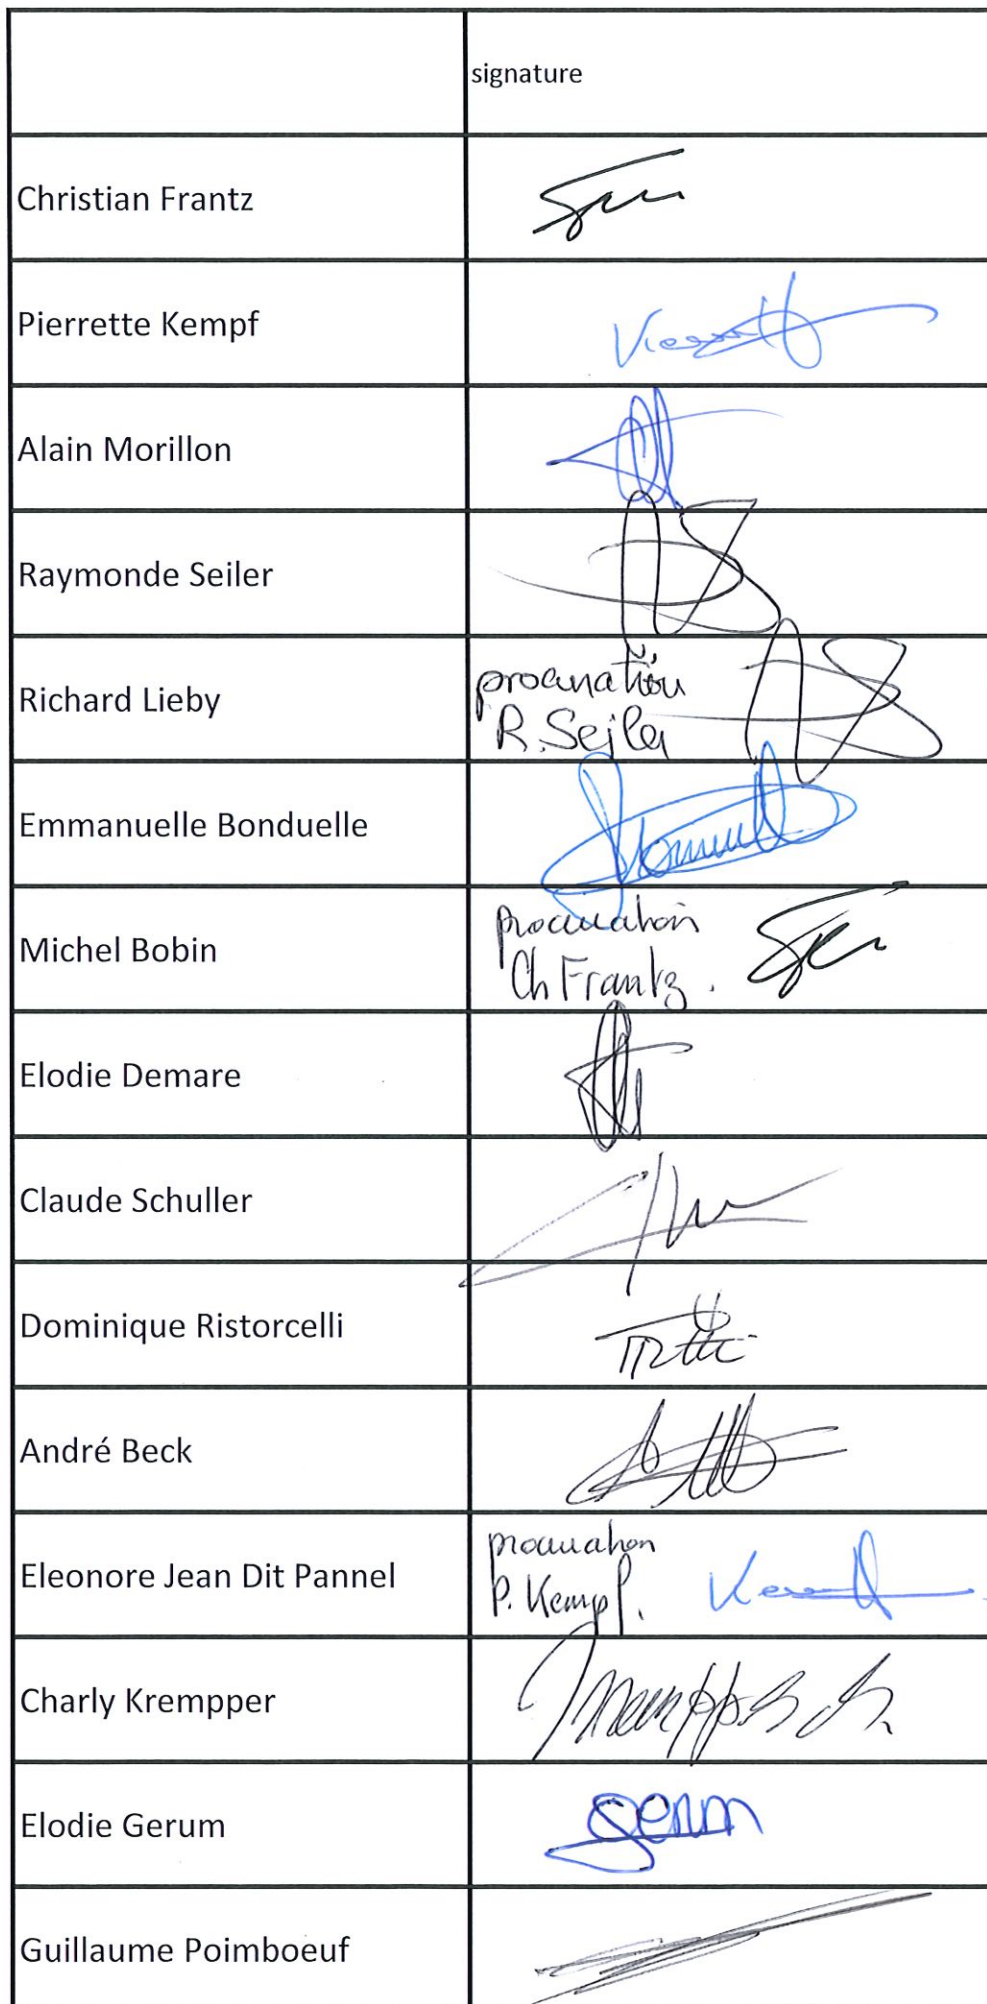 signature
Christian Frantz
Pierrette Kempf
Alain Morillon
Raymonde Seiler
Richard Lieby
procuration
R. Seiler
Emmanuelle Bonduelle
Michel Bobin
procuration
Ch Frantz.
Elodie Demare
Claude Schuller
Dominique Ristorcelli
André Beck
Eleonore Jean Dit Pannel
procuration
P. Kempf.
Charly Krempper
Elodie Gerum
Gerum
Guillaume Poimboeuf